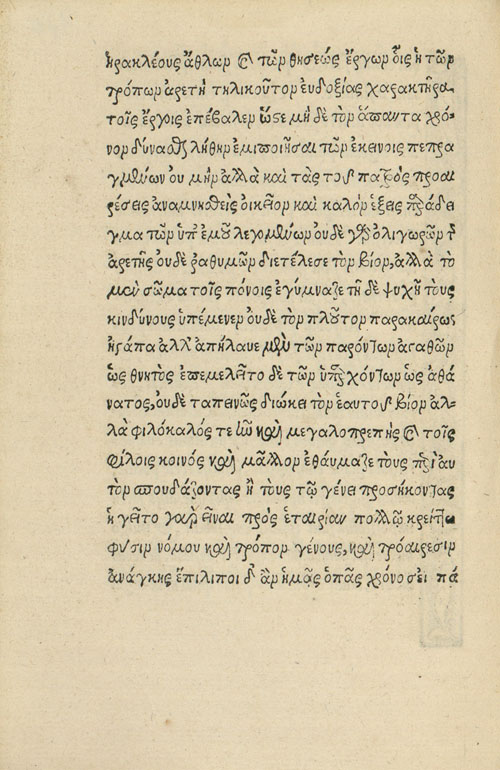 ἡρακλέους ἄθλων καὶ τῶν θησεώς ἔργων οἷς ἡ τῶν
τρόπων ἀρετὴ τηλικοῦτον εὐδοξίας χαρακτῆρα
τοῖς ἔργοις ἐπέβαλεν ὥστε μὴ δὲ τὸν ἅπαντα χρό-
νον δύνασθαι λήθην ἐμποιῆσαι τῶν ἐκείνοις πεπρα
γμένων οὐ μὴν ἀλλὰ καὶ τὰς τοῦ πατρὸς προαι
ρέσεις ἀναμνησθεὶς οἰκεῖον καὶ καλὸν ἕξεις παράδει
γμα τῶν ὑπ' ἐμοῦ λεγομένων οὐδὲ γὰρ ὀλιγωρῶν τῆς
ἀρετῆς οὐδὲ ῥαθυμῶν διετέλεσε τὸν βίον, ἀλλὰ τὸ
μὲν σῶμα τοῖς πόνοις ἐγύμναζε τῇ δὲ ψυχῇ τοὺς
κινδύνους ὑπέμενεν οὐδὲ τὸν πλοῦτον παρακαίρως
ἠγάπα ἀλλ' ἀπήλαυε μὲν τῶν παρόντων ἀγαθῶν
ὡς θνητὸς ἐπεμελεῖτο δὲ τῶν ὑπαρχόντων ὡς ἀθά
νατος, οὐδὲ ταπεινῶς διώκει τὸν ἑαυτοῦ βίον ἀλ-
λὰ φιλόκαλός τε ἦν καὶ μεγαλοπρεπὴς καὶ τοῖς
φίλοις κοινός καὶ μᾶλλον ἐθαύμαζε τοὺς περὶ αὐ
τὸν σπουδάζοντας ἢ τοὺς τῷ γένει προσήκοντας
ἡγεῖτο γὰρ εἶναι πρὸς ἑταιρίαν πολλῷ κρείττω
φύσιν νόμου καὶ τρόπον γένους, καὶ προαίρεσιν
ἀνάγκης ἐπιλίποι δ' ἂν ἡμᾶς ὁ πᾶς χρόνος εἰ πά